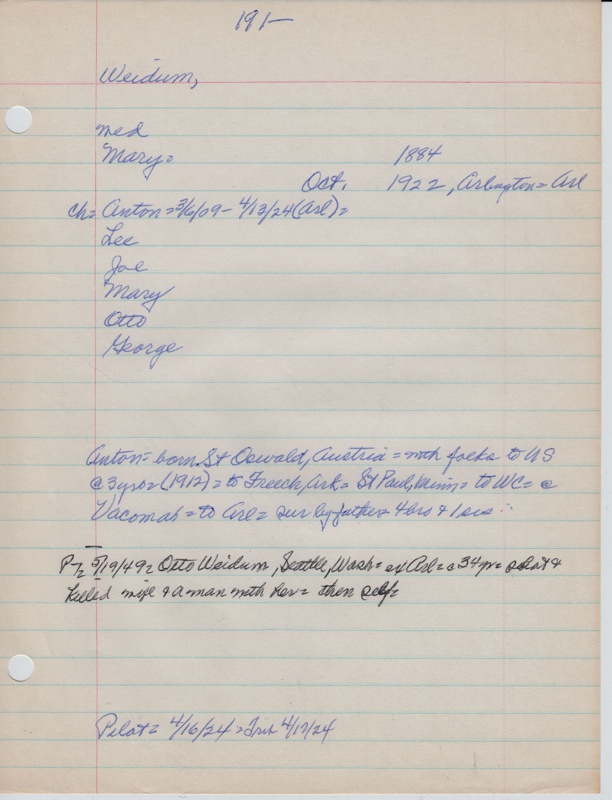 191-
Weidum,
med
Mary= 1884
Oct. 1922, Arlington= Arl
ch= Anton=3/6/09- 4/13/24(Arl)=
Lee
Joe
Mary
Otto
George
Anton= born St Oswald, Austria= with folks to US
@ 3yrs=(1912)= to Freech, Ark= St Paul, Minn= to WC= @
Vacomah= to Arl= sur by father 4 bros & 1 sis
P-I 5/19/49= Otto Weidum, Seattle, Wash= ex Arl= @ 34yr= shot &
killed wife & a man with her= then self=
Pilot= 4/16/24= 4/17/24